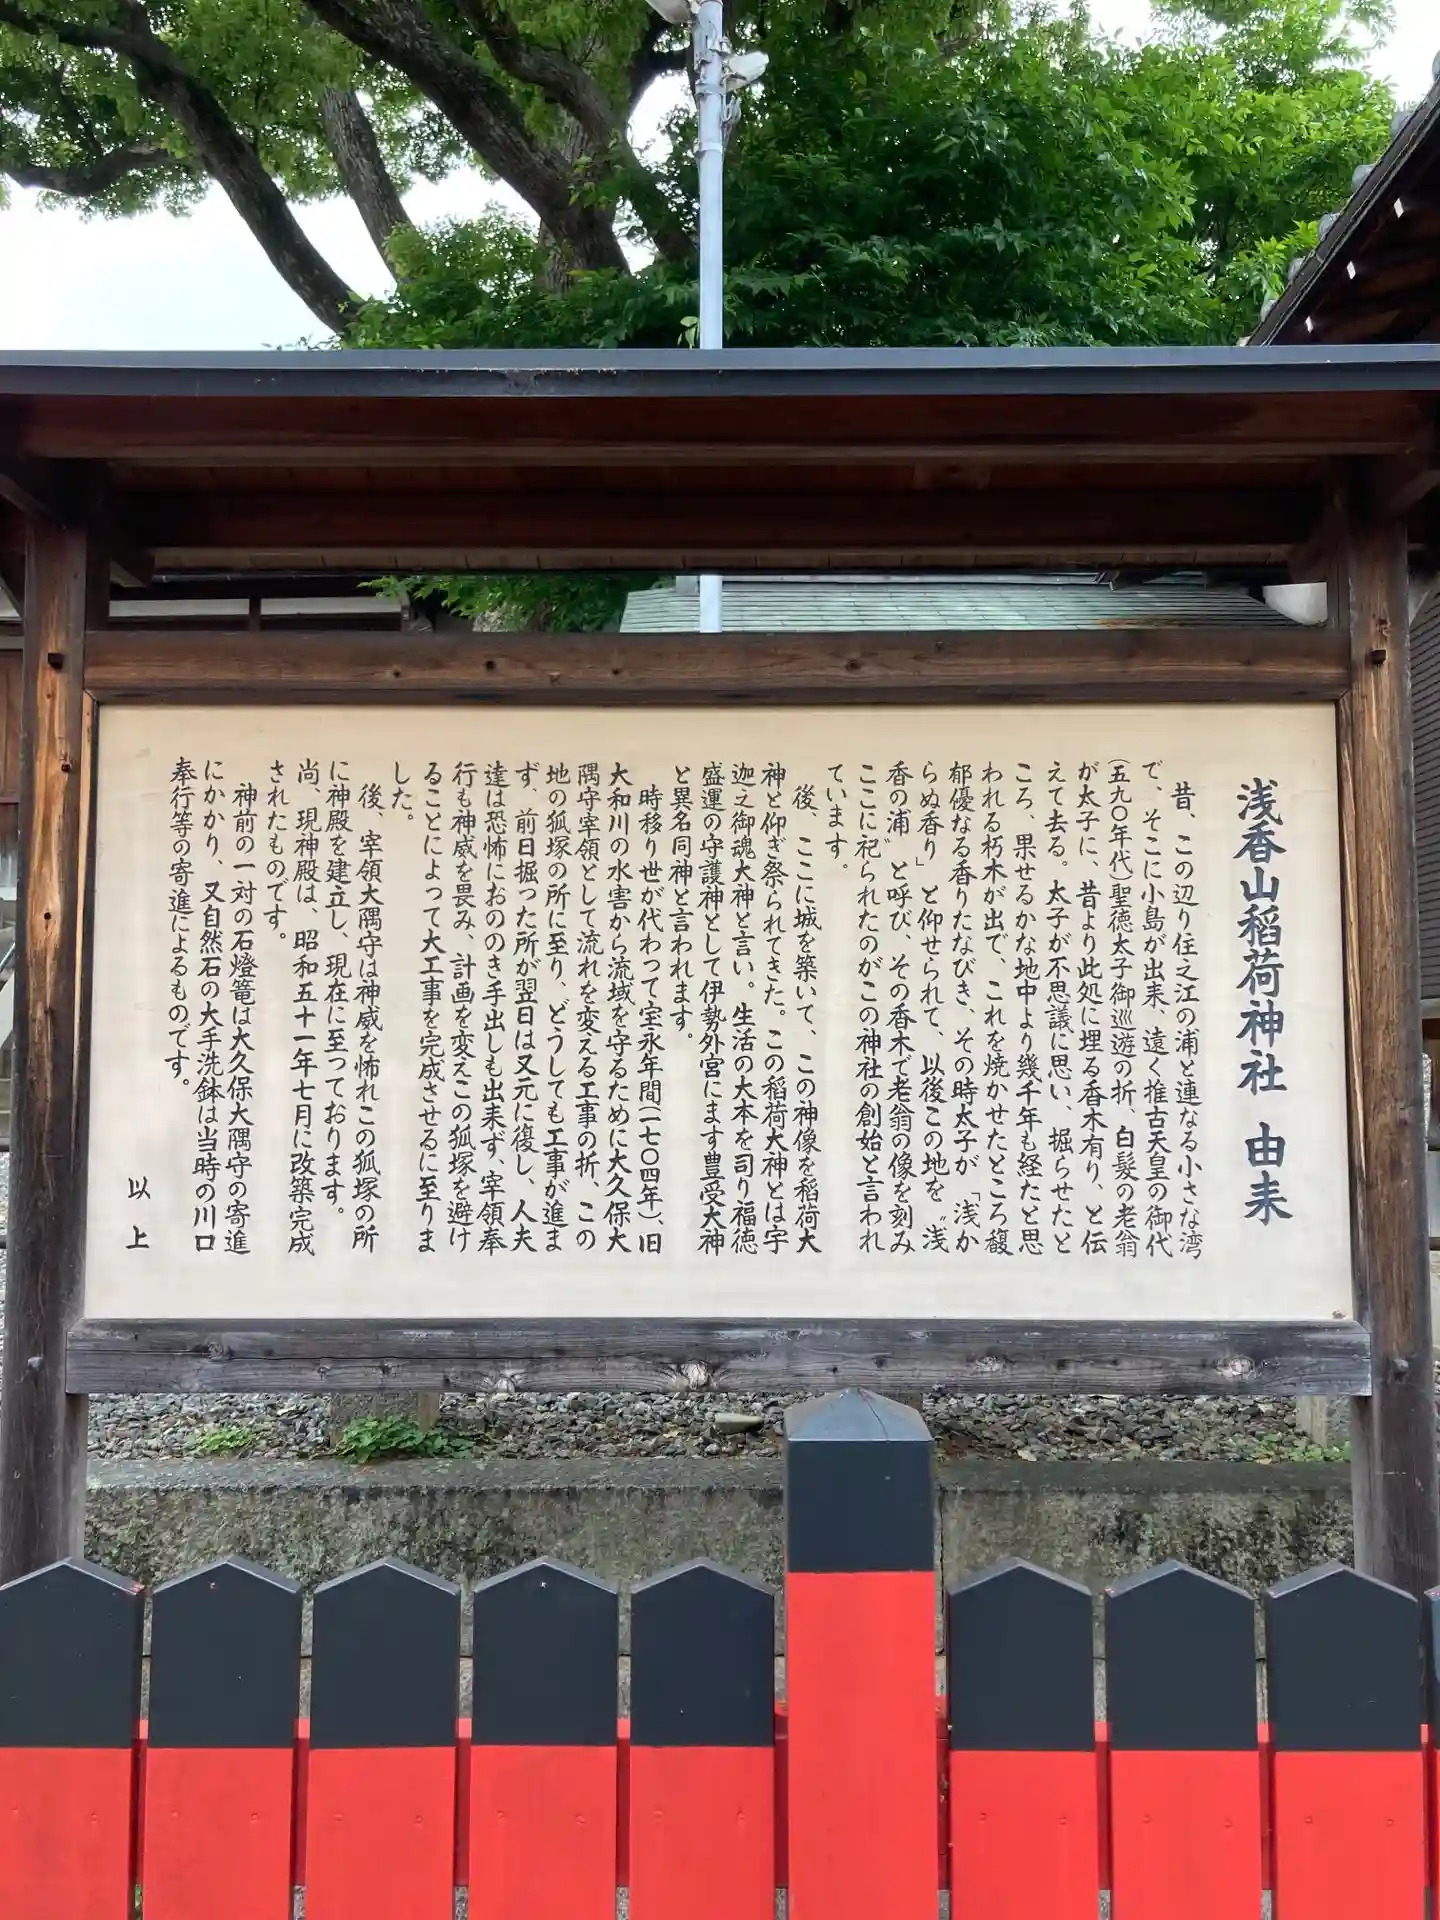 浅香山稲荷神社 由来
昔、この辺り住之江の浦と連なる小さな湾
で、そこに小島が出来、遠く推古天皇の御代
(五九〇年代)聖徳太子御巡遊の折、白髪の老翁
が太子に、昔より此処に埋る香木有り、と伝
えて去る。太子が不思議に思い、掘らせたと
ころ、果せるかな地中より幾千年も経たと思
われる朽木が出で、これを焼かせたところ馥
郁優なる香りたなびき、その時太子が「浅か
らぬ香り」と仰せられて、以後この地を〝浅
香の浦〟と呼び、その香木で老翁の像を刻み
ここに祀られたのがこの神社の創始と言われ
ています。
後、ここに城を築いて、この神像を稲荷大
神と仰ぎ祭られてきた。この稲荷大神とは宇
迦之御魂大神と言い。生活の大本を司り福徳
盛運の守護神として伊勢外宮にます豊受大神
と異名同神と言われます。
時移り世が代わって宝永年間(一七〇四年)、旧
大和川の水害から流域を守るために大久保大
隅守宰領として流れを変える工事の折、この
地の狐塚の所に至り、どうしても工事が進ま
ず、前日掘った所が翌日は又元に復し、人夫
達は恐怖におののき手出しも出来ず、宰領奉
行も神威を畏み、計画を変えこの狐塚を避け
ることによって大工事を完成させるに至りま
した。
後、宰領大隅守は神威を怖れこの狐塚の所
に神殿を建立し、現在に至っております。
尚、現神殿は、昭和五十一年七月に改築完成
されたものです。
神前の一対の石燈篭は大久保大隅守の寄進
にかかり、又自然石の大手洗鉢は当時の川口
奉行等の寄進によるものです。
以上